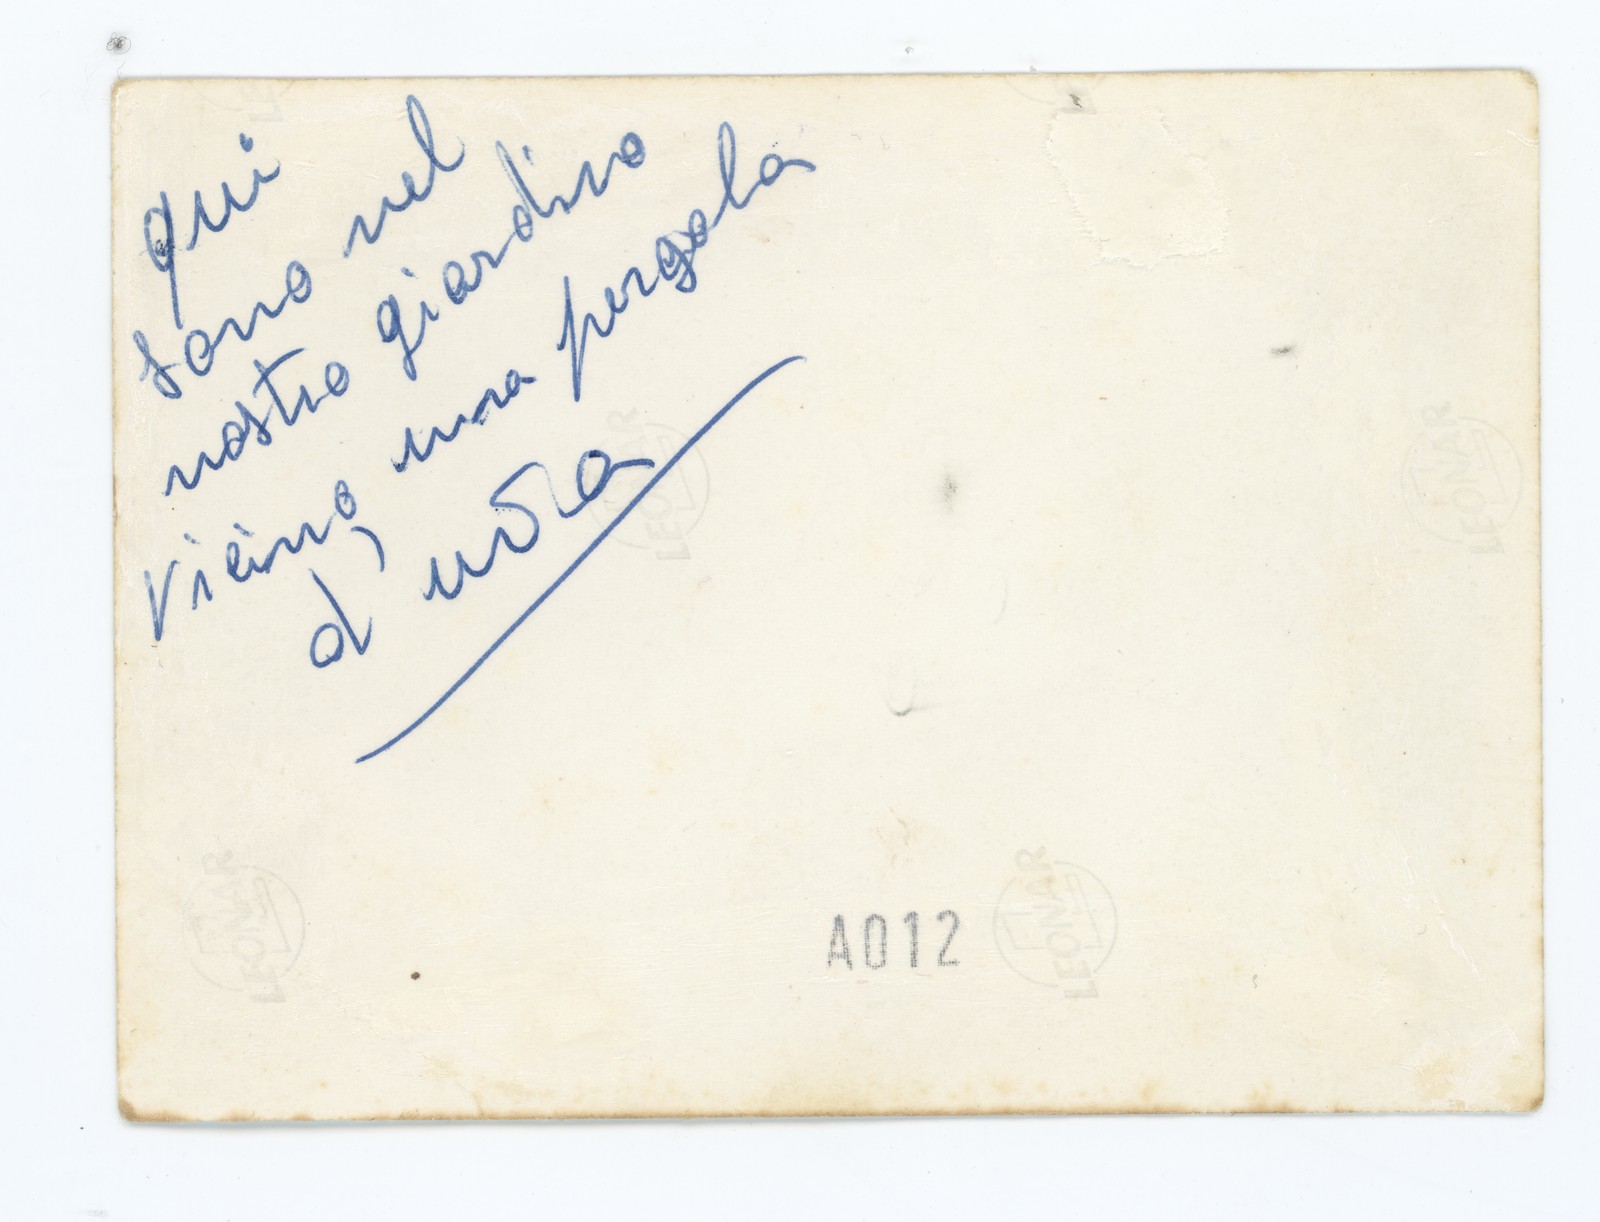 qui
sono nel
nostro giardino
vicino una pergola
d'uva
A012
LEONAR
LEONAR
LEONAR
LEONAR